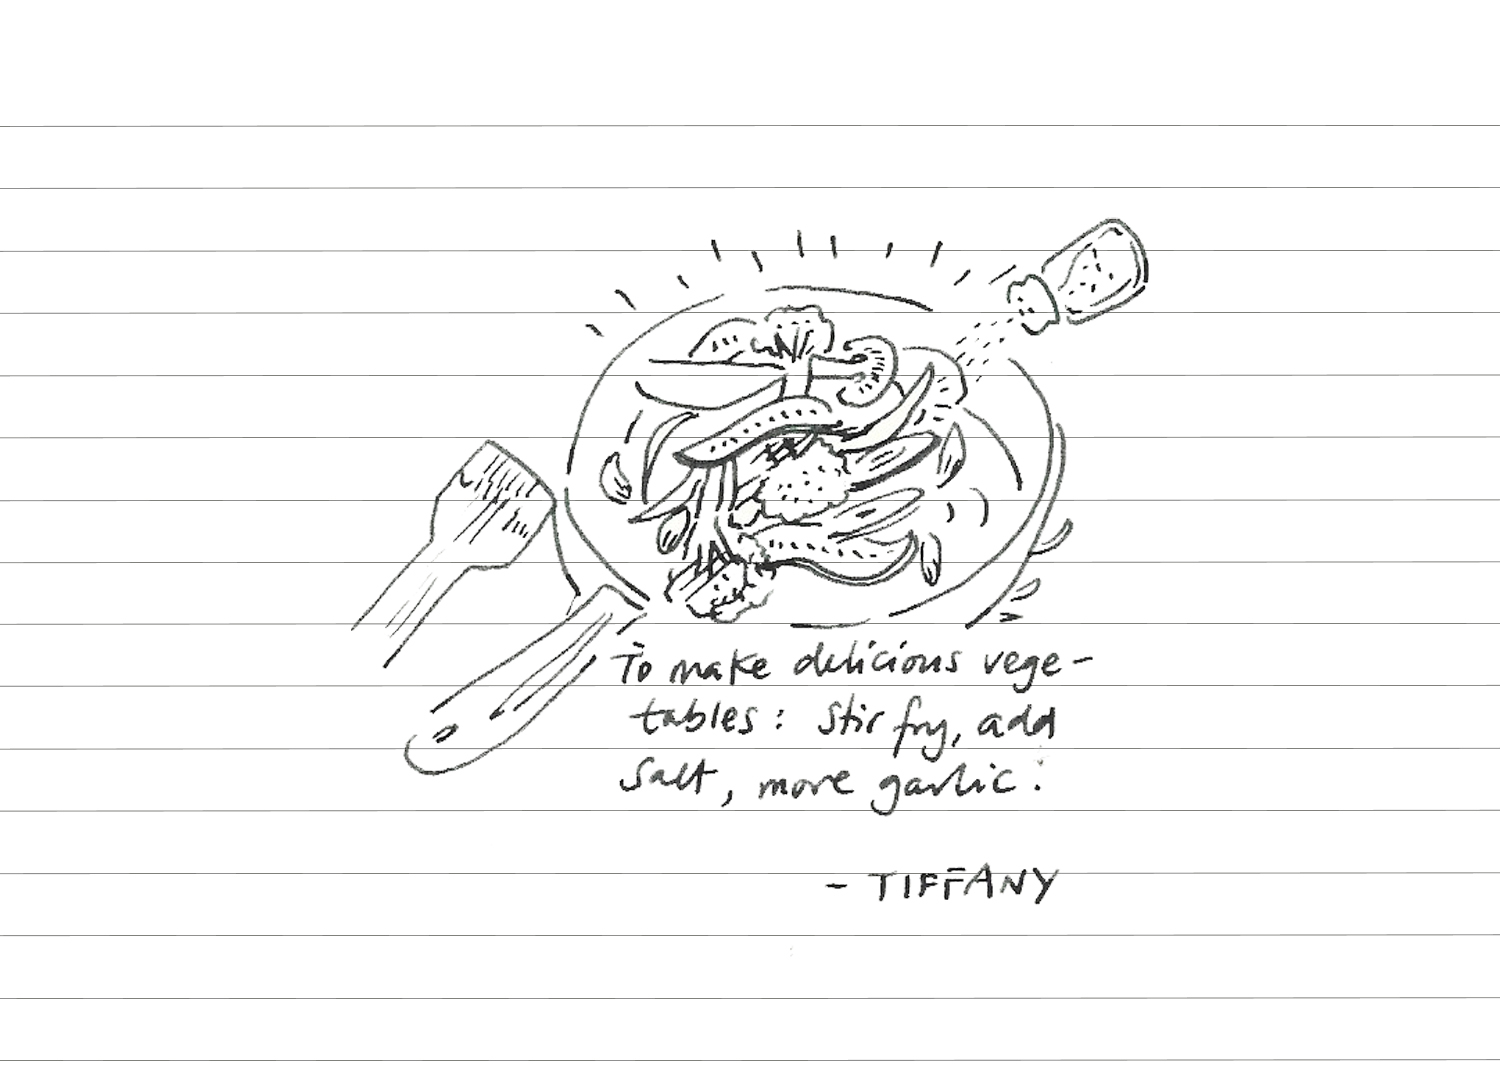 To make delicious vege-
tables: Stir fry, add
Salt, more garlic!
- TIFFANY